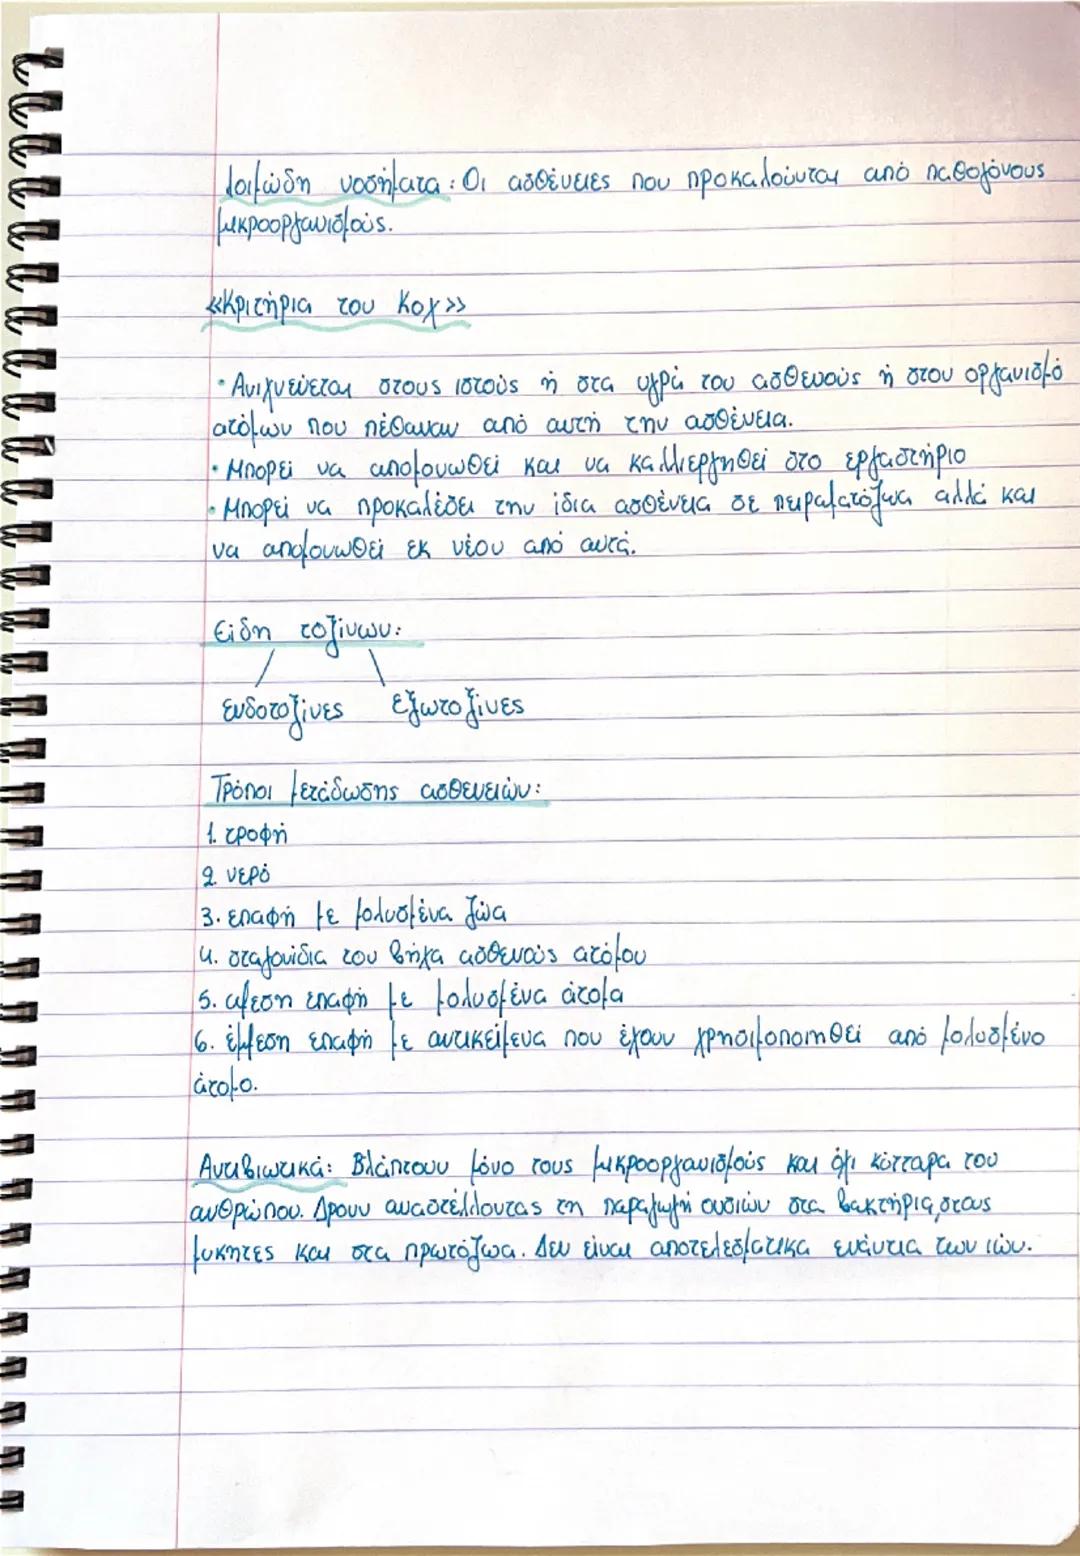 Λοιμώδη νοσήματα: Οι ασθένειες που προκαλούνται από παθογόνους
μικροοργανισμούς.
«Κριτήρια του Κοχ»
• Ανιχνεύεται στους ιστούς ή στα υγρά του ασθενούς ή στον οργανισμό
ατόμων που πέθαναν από αυτή την ασθένεια.
• Μπορεί να απομονωθεί και να καλλιεργηθεί στο εργαστήριο
• Μπορεί να προκαλέσει την ίδια ασθένεια σε πειραματόζωα αλλά και
να απομονωθεί εκ νέου από αυτά.
Είδη τοξίνων:
ενδοτοξίνες εξωτοξίνες
Τρόποι μετάδωσης ασθενειών:
1. τροφή
2. νερό
3. επαφή με μολυσμένα ζώα
4. σταγονίδια του βήχα ασθενούς ατόμου
5. άμεση επαφή με μολυσμένα άτομα
6. έμμεση επαφή με αντικείμενα που έχουν χρησιμοποιηθεί από μολυσμένο
άτομο.
Αντιβιωτικά: Βλάπτουν μόνο τους μικροοργανισμούς και όχι κύτταρα του
ανθρώπου. Δρουν αναστέλλοντας τη παραγωγή ουσιών στα βακτήρια, στους
μύκητες και στα πρωτόζωα. Δεν είναι αποτελεσματικά ενάντια των ιών.